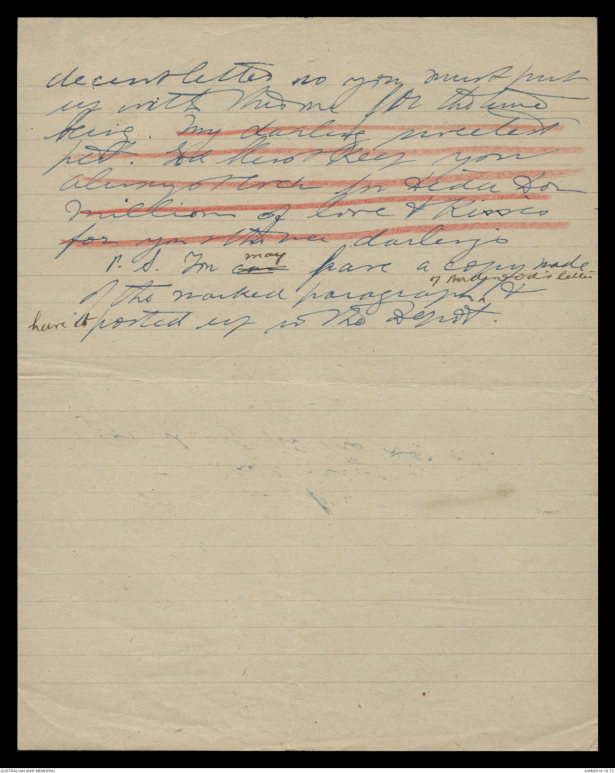 decent letter so you must put
up with this one for the time
being. My darling sweetest
pet. God bless & keep you
always & ever for
millions of love & kisses
for you three darlings
P. S. You can may have a copy made
of the marked paragraph of Birdwood's letter &
have it posted up in the Depot.
AUSTRALIAN WAR MEMORIAL